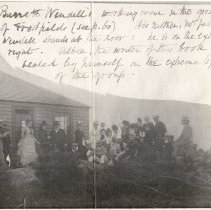 Burnett Wendell, working man in the grove
of Frostfields (see p. 60) his brother, Mr Jac
Wendell stands at the door: he is on the ex
right. Albee the writer of this book
sealed by himself on the extreme
of the group.